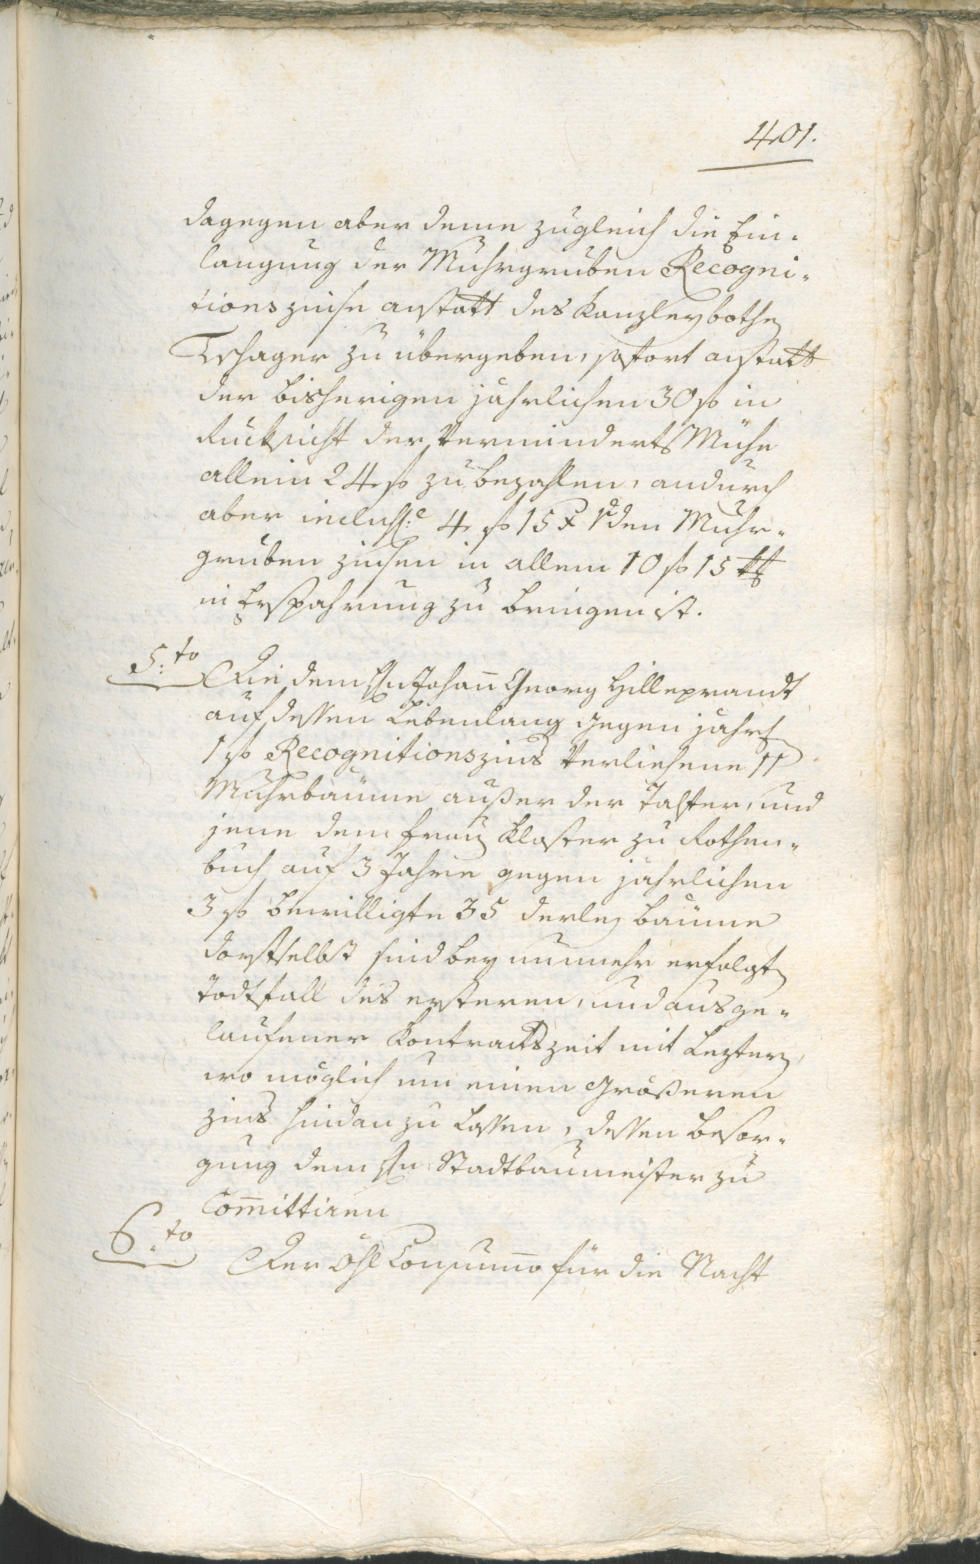 401.
dagegen aber deme zugleich die Ein„
langung der Muhrgruben Recogni„
tionszinse anstatt des Kanzleybothe
Tschager zu übergeben, sofort anstatt
der bisherigen jährlichen 30 f in
Rücksicht der Verminderts Mühe
allein 24 f zu bezahlen, andurch
aber inclus:e 4 f 15 x den Muhr„
gruben zinsen in allem 10 f 15 x
in Erspahrung zu bringen ist.
5.to Die dem Hn Johan̄ Georg Hilleprandt
auf dessen Lebenlang gegen jährl
1 f Recognitionszins Verliehene 11
Muhrbaume außer der Talfer, und
jene dem frauen Kloster zu Rothen„
buch auf 3 Jahre gegen jährlichen
3 f bewilligte 35 derley baume
dortselbst sind bey nunmehr erfolgt
Todtfall des ersteren, und ausge„
laufener Kontractszeit mit Lezter
wo möglich um einen Größeren
zins hindan zu lassen, dessen besor„
gung dem Hn Stadtbaumeister zu
Com̄ittiren
6.to Der Öhl Consum̄o für die Nacht